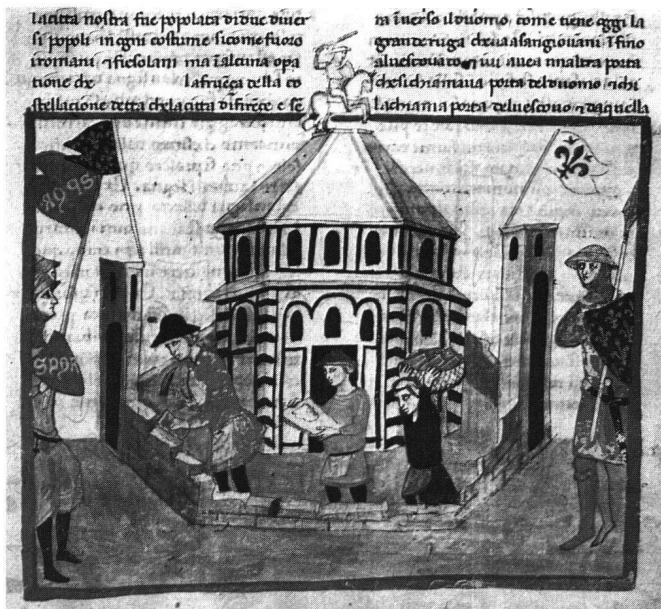 lacitta nostra fue popolata di due diuer
si popoli in ogni costume sicome fuoro
iromani ⁊ fiesolani ma
della co
stellacione detta chelacitta
iuerso il duomo, come tiene oggi la
grande ruga cheua asangiouani
aluescouato ⁊ iui auea porta
chesichiamaua porta delduomo ⁊ chi
lachiama porta deluescouo ⁊ daquella
SPQR
SPQR